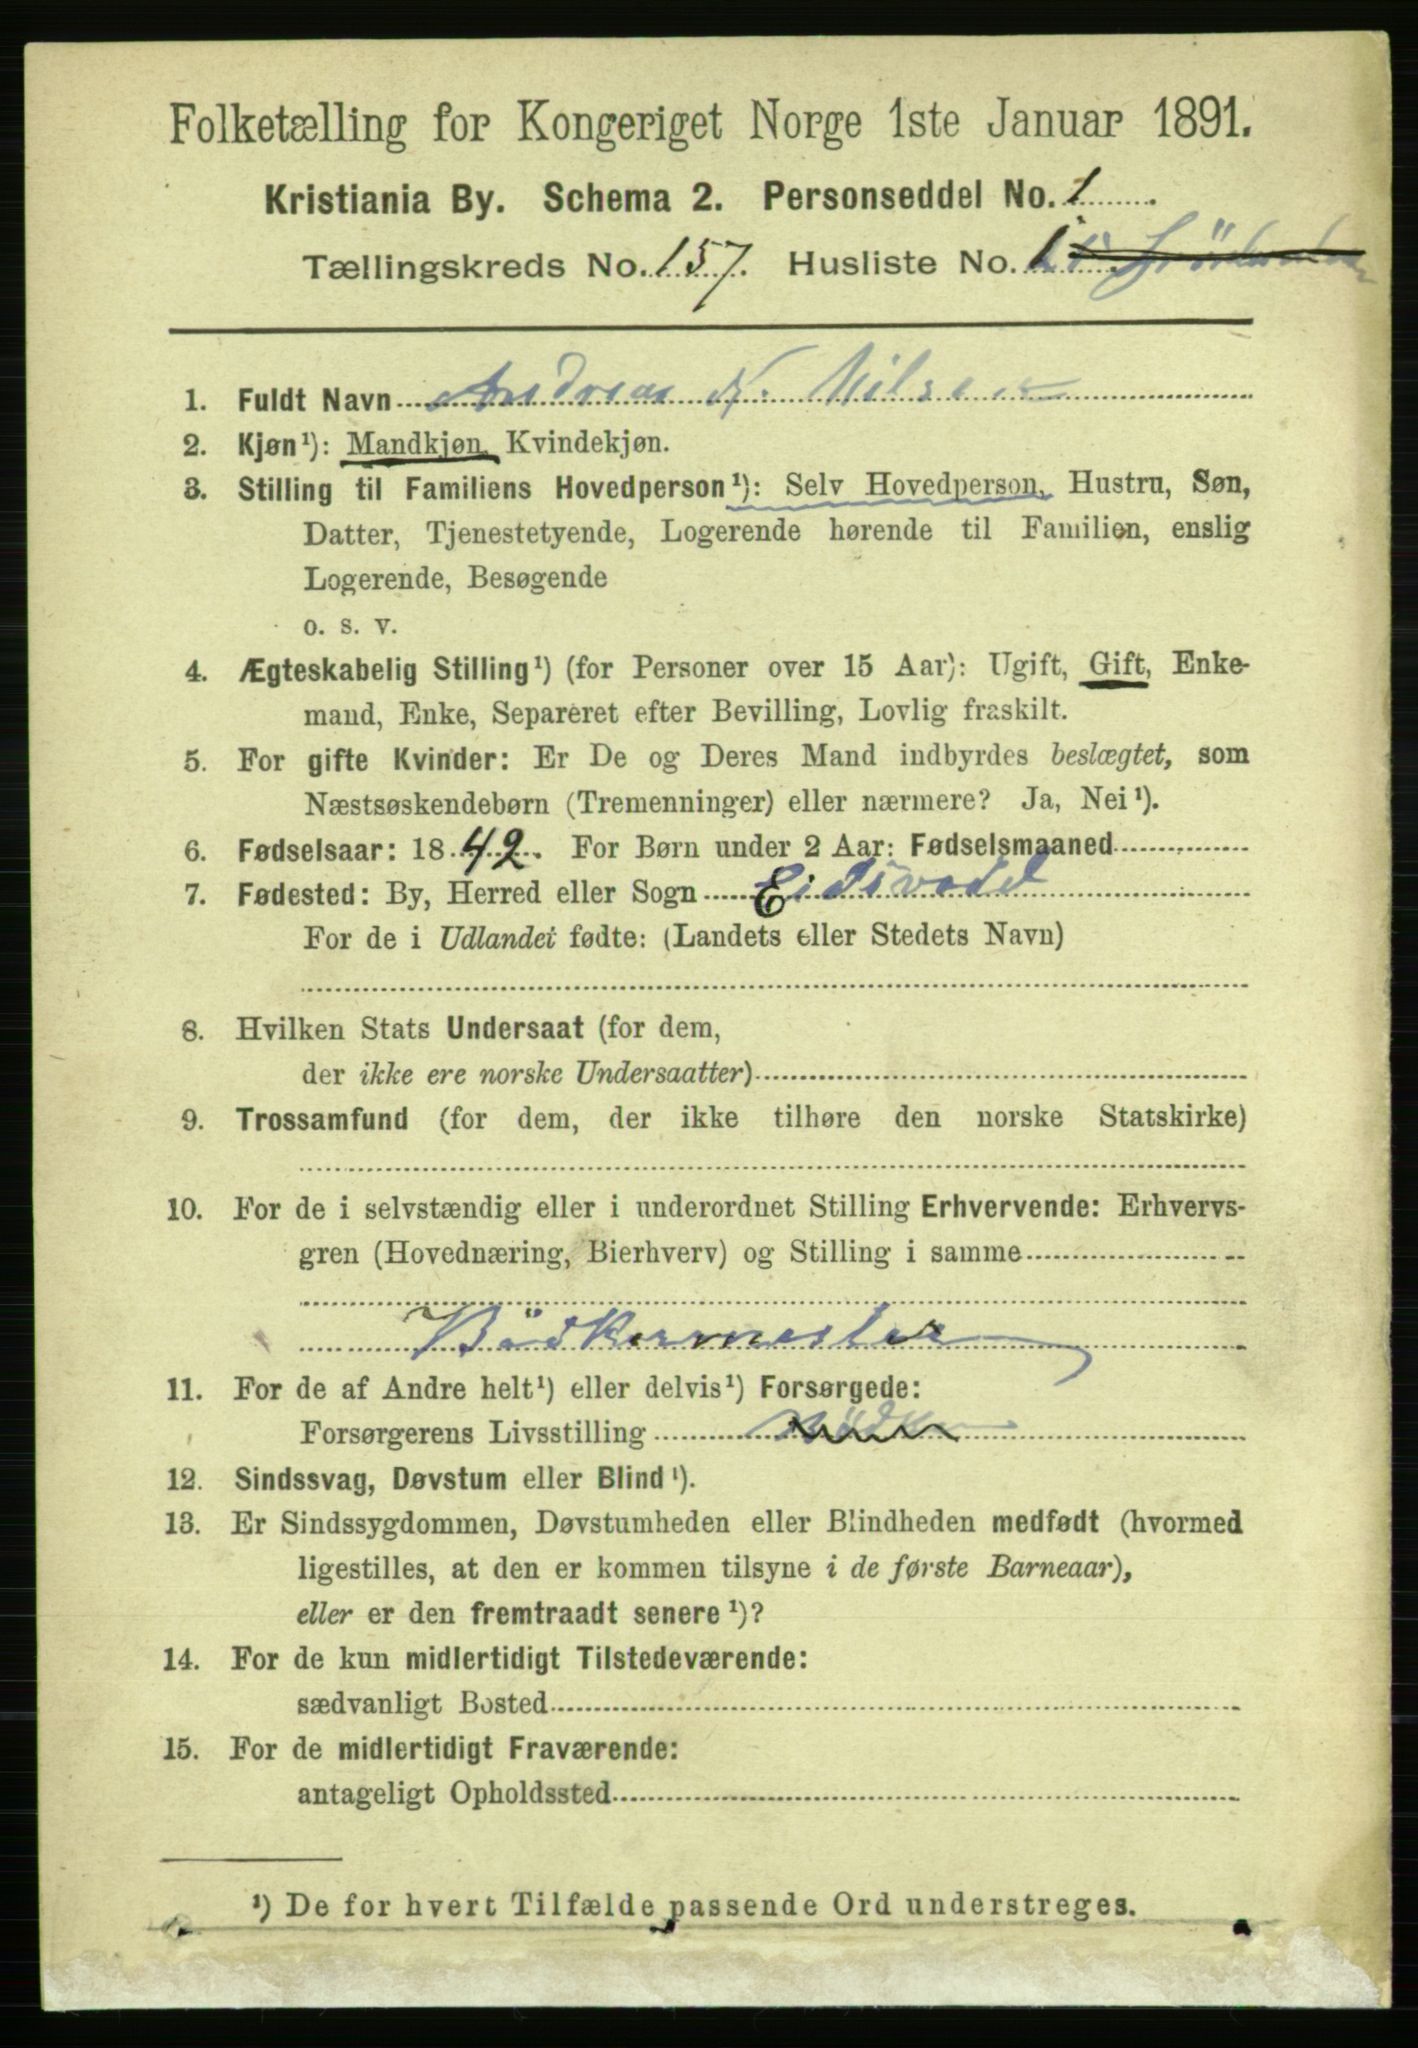 Folketælling for Kongeriget Norge 1ste Januar 1891.
Kristiania By. Schema 2. Personseddel No. 1.
Tællingskreds No. 157. Husliste No. 1
1. Fuldt Navn Andreas N. Nilsen
2. Kjøn¹): Mandkjøn, Kvindekjøn.
3. Stilling til Familiens Hovedperson¹): Selv Hovedperson, Hustru, Søn,
Datter, Tjenestetyende, Logerende hørende til Familien, enslig
Logerende, Besøgende
o. s. v.
4. Ægteskabelig Stilling¹) (for Personer over 15 Aar): Ugift, Gift, Enke-
mand, Enke, Separeret efter Bevilling, Lovlig fraskilt.
5. For gifte Kvinder: Er De og Deres Mand indbyrdes beslægtet, som
Næstsøskendebørn (Tremenninger) eller nærmere? Ja, Nei¹).
6. Fødselsaar: 1842. For Børn under 2 Aar: Fødselsmaaned
7. Fødested: By, Herred eller Sogn Eidsvold
For de i Udlandet fødte: (Landets eller Stedets Navn)
8. Hvilken Stats Undersaat (for dem,
der ikke ere norske Undersaatter)
9. Trossamfund (for dem, der ikke tilhøre den norske Statskirke)
10. For de i selvstændig eller i underordnet Stilling Erhvervende: Erhvervs-
gren (Hovednæring, Bierhverv) og Stilling i samme
Bödkermester
11. For de af Andre helt¹) eller delvis¹) Forsørgede:
Forsørgerens Livsstilling
12. Sindssvag, Døvstum eller Blind¹).
13. Er Sindssygdommen, Døvstumheden eller Blindheden medfødt (hvormed
ligestilles, at den er kommen tilsyne i de første Barneaar),
eller er den fremtraadt senere¹)?
14. For de kun midlertidigt Tilstedeværende:
sædvanligt Bosted
15. For de midlertidigt Fraværende:
antageligt Opholdssted
¹) De for hvert Tilfælde passende Ord understreges.